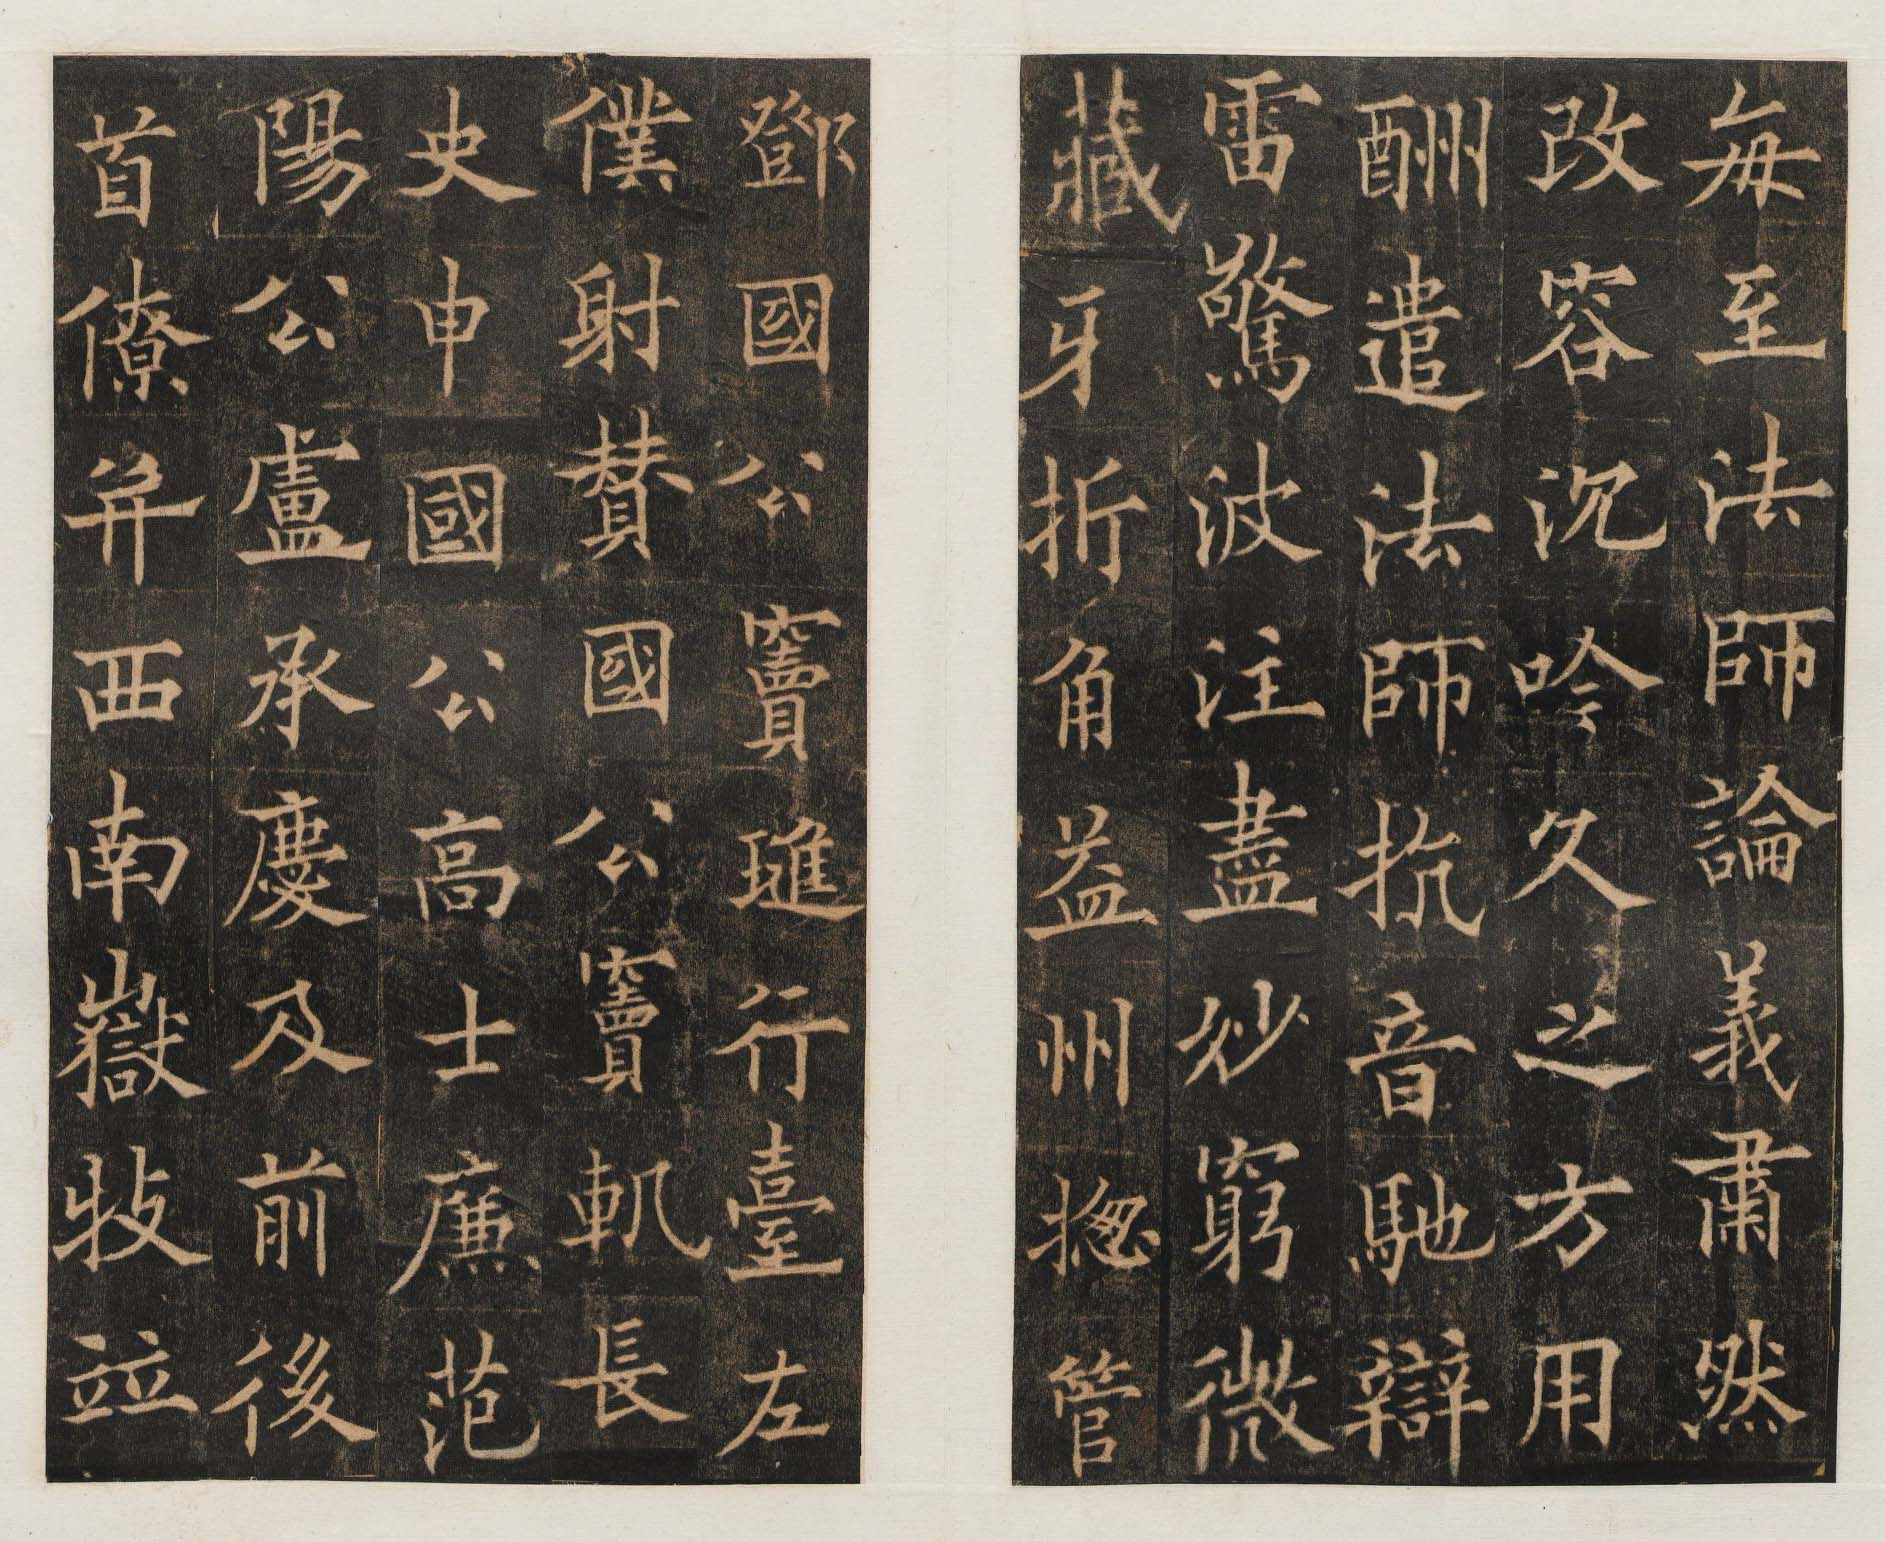 每至法師論義肅然
改容沉吟久之方用
酬遣法師抗音馳辯
雷驚波注盡妙窮微
藏牙折角益州揔管
鄧國公竇璡行臺左
僕射贊國公竇軌長
史申國公高士廉范
陽公盧承慶及前後
首僚并西南嶽牧並